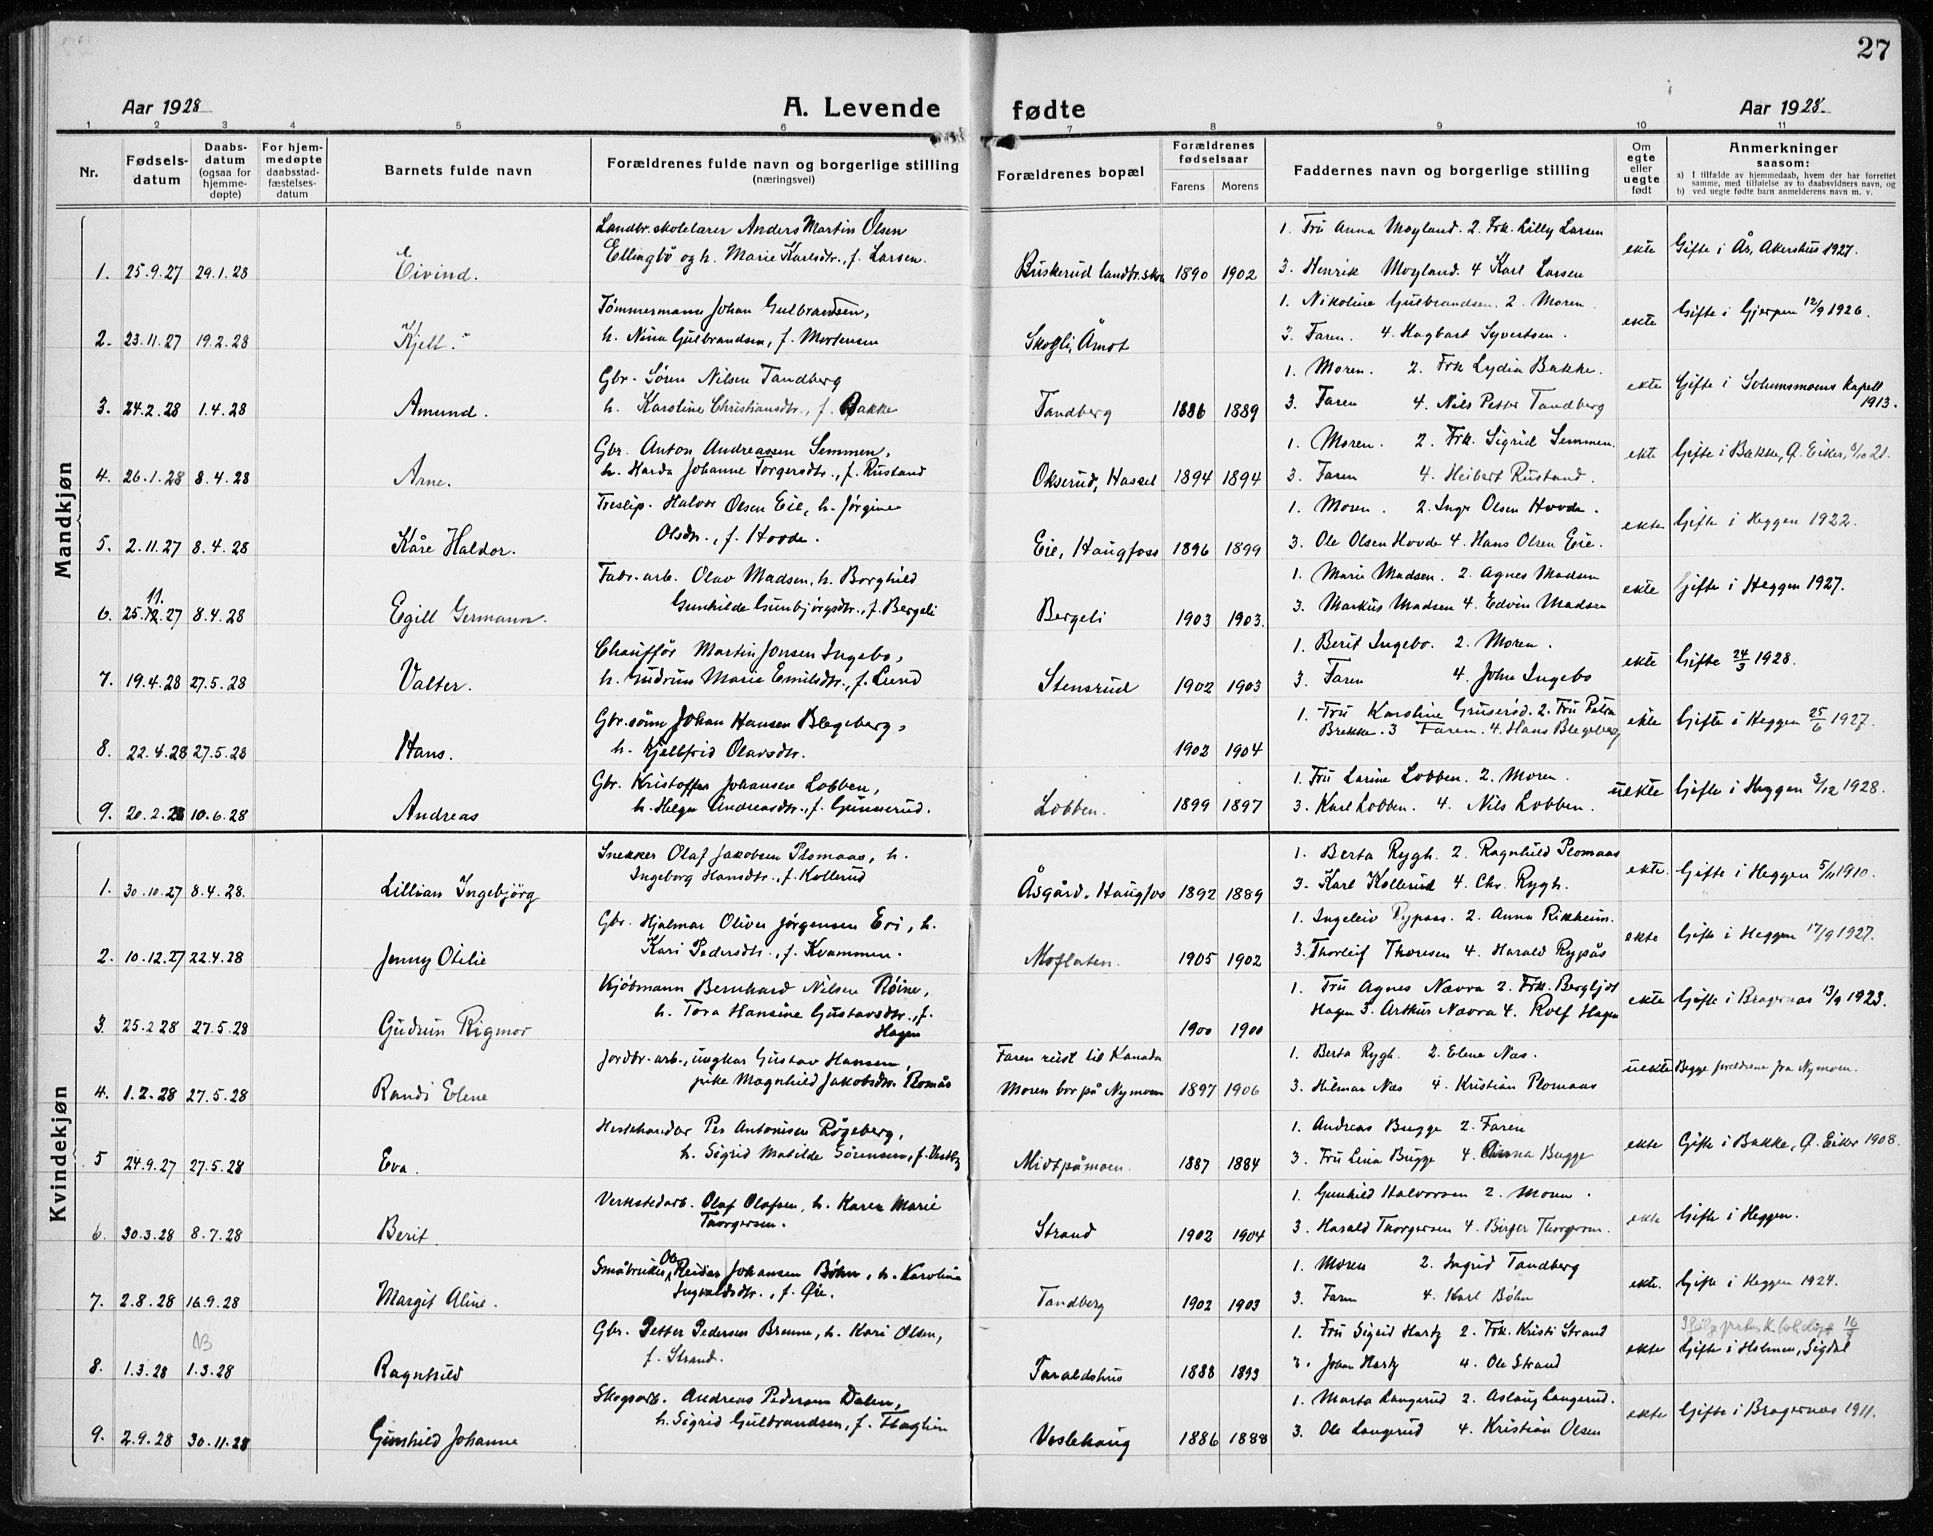 27
Aar 1928 A. Levende fødte Aar 1928
1 2 3 4 5 6 7 8 9 10 11
Nr. Fødsels-datum Daabs-datum (ogsaa for hjemme-døpte) For hjem-medøpte daabsstad-fæstelses-datum Barnets fulde navn Forældrenes fulde navn og borgerlige stilling (næringsvei) Forældrenes bopæl Forældrenes fødselsaar Farens Morens Faddernes navn og borgerlige stilling Om egte eller uegte født Anmerkninger saasom:
a) I tilfælde av hjemmedaab, hvem der har forrettet samme, med tilføielse av to daabsvidners navn, og
b) ved uegte fødte barn anmelderens navn m. v.
Mandkjøn
Landbr. skolelærer Anders Martin Olsen 1. Fru Anna Moyland. 2. Frk. Lilly Larsen
1. 25.9.27 29.1.28 Eivind. Ellingbø og h. Marie Karlsdtr., f. Larsen. Buskerud landbr. skole 1890 1902 3. Henrik Moyland. 4 Karl Larsen ekte Gifte i Ås, Akershus 1927.
Tømmermann Johan Gulbrandsen, 1. Nikoline Gulbrandsen. 2. Moren.
2. 23.11.27 19.2.28 Kjell. h. Nina Gulbrandsen, f. Mortensen Skogli, Åmot 3. Faren. 4. Hagbart Syvertsen. ekte Gifte i Gjerpen 12/9 1926.
Gbr. Søren Nilsen Tandberg 1. Moren. 2. Frk Lydia Bakke.
3. 24.2.28 1.4.28 Amund. h. Karoline Christiansdtr., f. Bakke Tandberg 1886 1889 3. Faren 4. Nils Petter Tandberg ekte Gifte i Solumsmoens kapell 1913.
Gbr. Anton Andreassen Semmen, 1. Moren. 2. Frk. Sigrid Semmen.
4. 26.1.28 8.4.28 Arne. h. Harda Johanne Torgersdtr., f. Rustand Okserud, Hassel 1894 1894 3. Faren 4. Heibert Rustand. ekte Gifte i Bakke, Ø. Eiker, 21.
Treslip. Halvor Olsen Eie, h. Jørgine 1. Moren. 2. Inger Olsen Hovde.
5. 2.11.27 8.4.28 Kåre Haldor. Olsdtr., f. Hovde. Eie, Haugfoss 1896 1899 3. Ole Olsen Hovde 4. Hans Olsen Eie. ekte Gifte i Heggen 1922.
Fabr. arb. Olav Madsen, h. Borghild 1. Marie Madsen. 2. Agnes Madsen
6. 25.11.27 8.4.28 Egill Germann. Gunhilde Gunbjørgsdtr., f. Bergeli Bergeli 1903 1903. 3. Markus Madsen 4. Edvin Madsen ekte Gifte i Heggen 1927.
Chauffør Martin Jonsen Ingebo, 1. Berit Ingebo. 2. Moren.
7. 19.4.28 27.5.28 Valter. h. Gudrun Marie Emilsdtr., f. Lund Stensrud 1902 1903 3. Faren 4. John Ingebo ekte Gifte 24/3 1928.
Gbr. sønn Johan Hansen Blegeberg, 1. Fru Karoline Gruserød. 2. Fru Petra
8. 22.4.28 27.5.28 Hans. h. Kjellfrid Olavsdtr. 1902 1904 Brekke. 3 Faren. 4. Hans Blegeberg ekte Gifte i Heggen 25/6 1927.
Gbr. Kristoffer Johansen Lobben, 1. Fru Larine Lobben. 2. Moren.
9. 20.2.28 10.6.28 Andreas h. Helga Andreasdtr., f. Gunnerud. Lobben. 1899 1897 3. Karl Lobben. 4. Nils Lobben. uekte Gifte i Heggen 3/12 1928.
Kvindekjøn
Snekker Olaf Jakobsen Plomaas, h. 1. Berta Rygh. 2. Ragnhild Plomaas
1. 30.10.27 8.4.28. Lillian Ingebjörg Ingeborg Hansdtr., f. Kollerud Åsgård. Haugfoss 1892 1889 3. Karl Kollerud 4. Chr. Rygh. ekte. Gifte i Heggen 5/11 1910.
Gbr. Hjalmar Oliver Jørgensen Eri, h. 1. Ingeleiv Rypaas. 2. Anna Rikheim.
2. 10.12.27 22.4.28 Jenny Otilie Kari Pedersdtr., f. Kvammen. Moflaten. 1905 1902 3. Thorleif Thoresen 4. Harald Rypås ekte Gifte i Heggen 17/9 1927.
Kjøbmann Bernhard Nilsen Røine, 1. Fru Agnes Nævra 2. Frk. Bergljot
3. 25.2 28 27.5.28 Gudrun Rigmor h. Tora Hansine Gustavsdtr., f. Hagen 1900 1900 Hagen 3. Arthur Nævra 4. Rolf Hagen ekte Gifte i Bragernes 13/9 1923.
Jordbr. arb., ungkar Gustav Hansen, Faren reist til Kanada 1. Berta Rygh. 2. Elene Næs.
4. 1.2.28 27.5.28 Randi Elene pike Magnhild Jakobsdtr. Plomås Moren bor på Nymoen 1897 1906 3. Hilmar Næs 4. Kristian Plomaas uekte Begge foreldrene fra Nymoen.
Hestehandler Per Antonisen Røgeberg, 1. Andreas Bugge 2. Faren
5 24.9.27 27.5.28 Eva. h. Sigrid Matilde Sørensen, f. Vestby Midtpåmoen. 1887 1884 3. Fru Lina Bugge 4. Anna Bugge ekte Gifte i Bakke, Ø. Eiker 1908.
Verkstedarb. Olaf Olafsen, h. Karen Marie 1. Gunhild Halvorsen 2. Moren.
6. 30.3.28 8.7.28 Berit. Thorgersen. Strand 1902 1904 3. Harald Thorgersen 4. Birger Thorgersen. ekte Gifte i Heggen.
Småbruker Reidar Johansen Bøhn, h. Karoline 1. Moren 2. Ingrid Tandberg
7. 2.8.28 16.9.28 Margit Aline. Ingvaldsdtr., f. Øie. Tandberg 1902 1903 3. Faren 4. Karl Bøhn ekte. Gifte i Heggen 1924.
NB Gbr. Petter Pedersen Brenne, h. Kari Olsen, 1. Fru Sigrid Hartz 2. Frk. Kristi Strand
8. 1.3.28 1.3.28 Ragnhild f. Strand. Taraldshus 1888 1893 3. Johan Hartz 4. Ole Strand ekte Gifte i Holmen, Sigdal
Skogsarb. Andreas Pedersen Dalen, 1. Marta Langerud 2. Aslaug Langerud.
9. 2.9.28 30.11.28 Gunhild Johanne h. Sigrid Gulbrandsen, f. Haglien Veslehaug 1886 1888 3. Ole Langerud 4. Kristian Olsen ekte Gifte i Bragernes 1911.